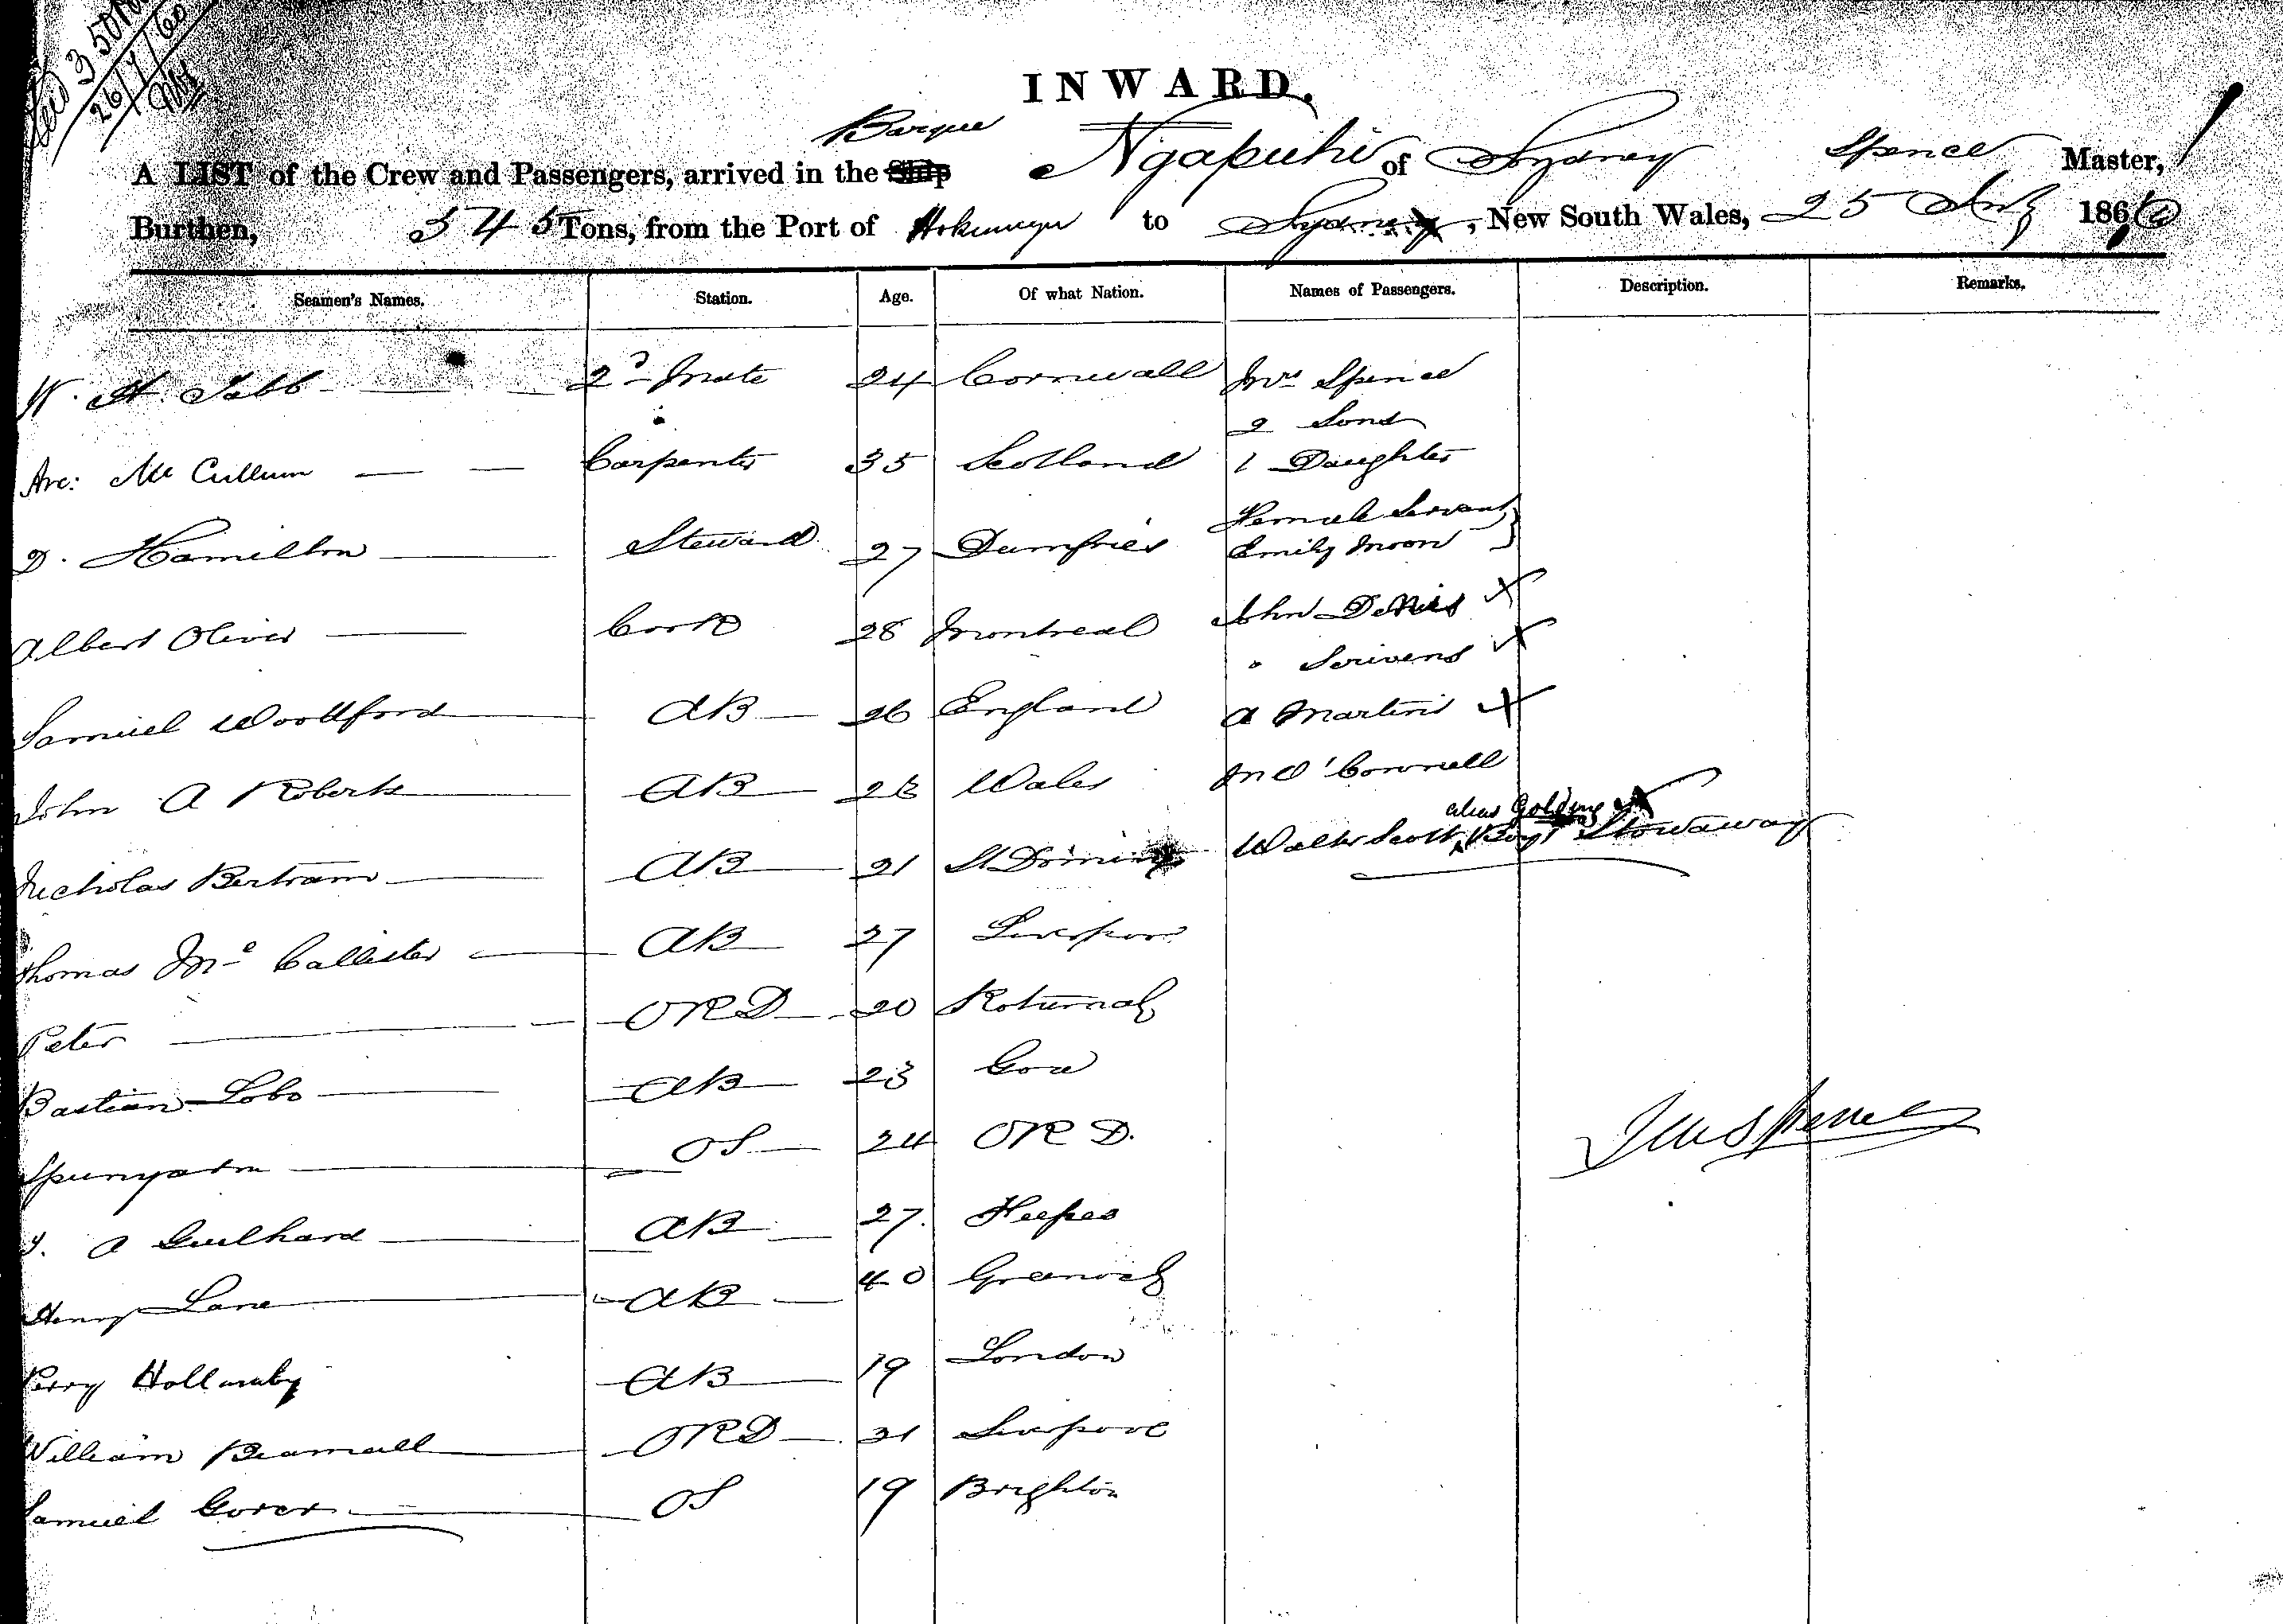 26/7/60
INWARD.
Barque
A LIST of the Crew and Passengers, arrived in the Ship Ngapuhi of Sydney Spence Master,
Burthen, 345 Tons, from the Port of to Sydney, New South Wales, 25 July 1860
Seamen's Names. Station. Age. Of what Nation. Names of Passengers. Description. Remarks.
W. H. Tabb 2d Mate 24 Cornwall Mrs Spence
2 Sons
Arc: Mc Cullum Carpenter 35 Scotland 1 Daughter
Female Servant
D. Hamilton Steward 27 Dumfries Emily Moon
Albert Oliver Cook 28 Montreal John
" Scrivens
Samuel Woollford AB 26 England A Martin
John A Roberts AB 23 Wales M O'Connell
alias Golding
Nicholas Bertram AB 21 St Walter Scott Boy Stowaway
Thomas Mc Callister AB 27 Liverpool
Peter ORD 20 Rotumah
Bastian Lobo AB 23 Goa
Spunyarn OS 24 ORD.
A Guilhard AB 27.
Henry Lane AB 40 Greenwich
Perry Hollamby AB 19 London
William Beamall ORD 21 Liverpool
Samuel Gorer OS 19 Brighton
Spence